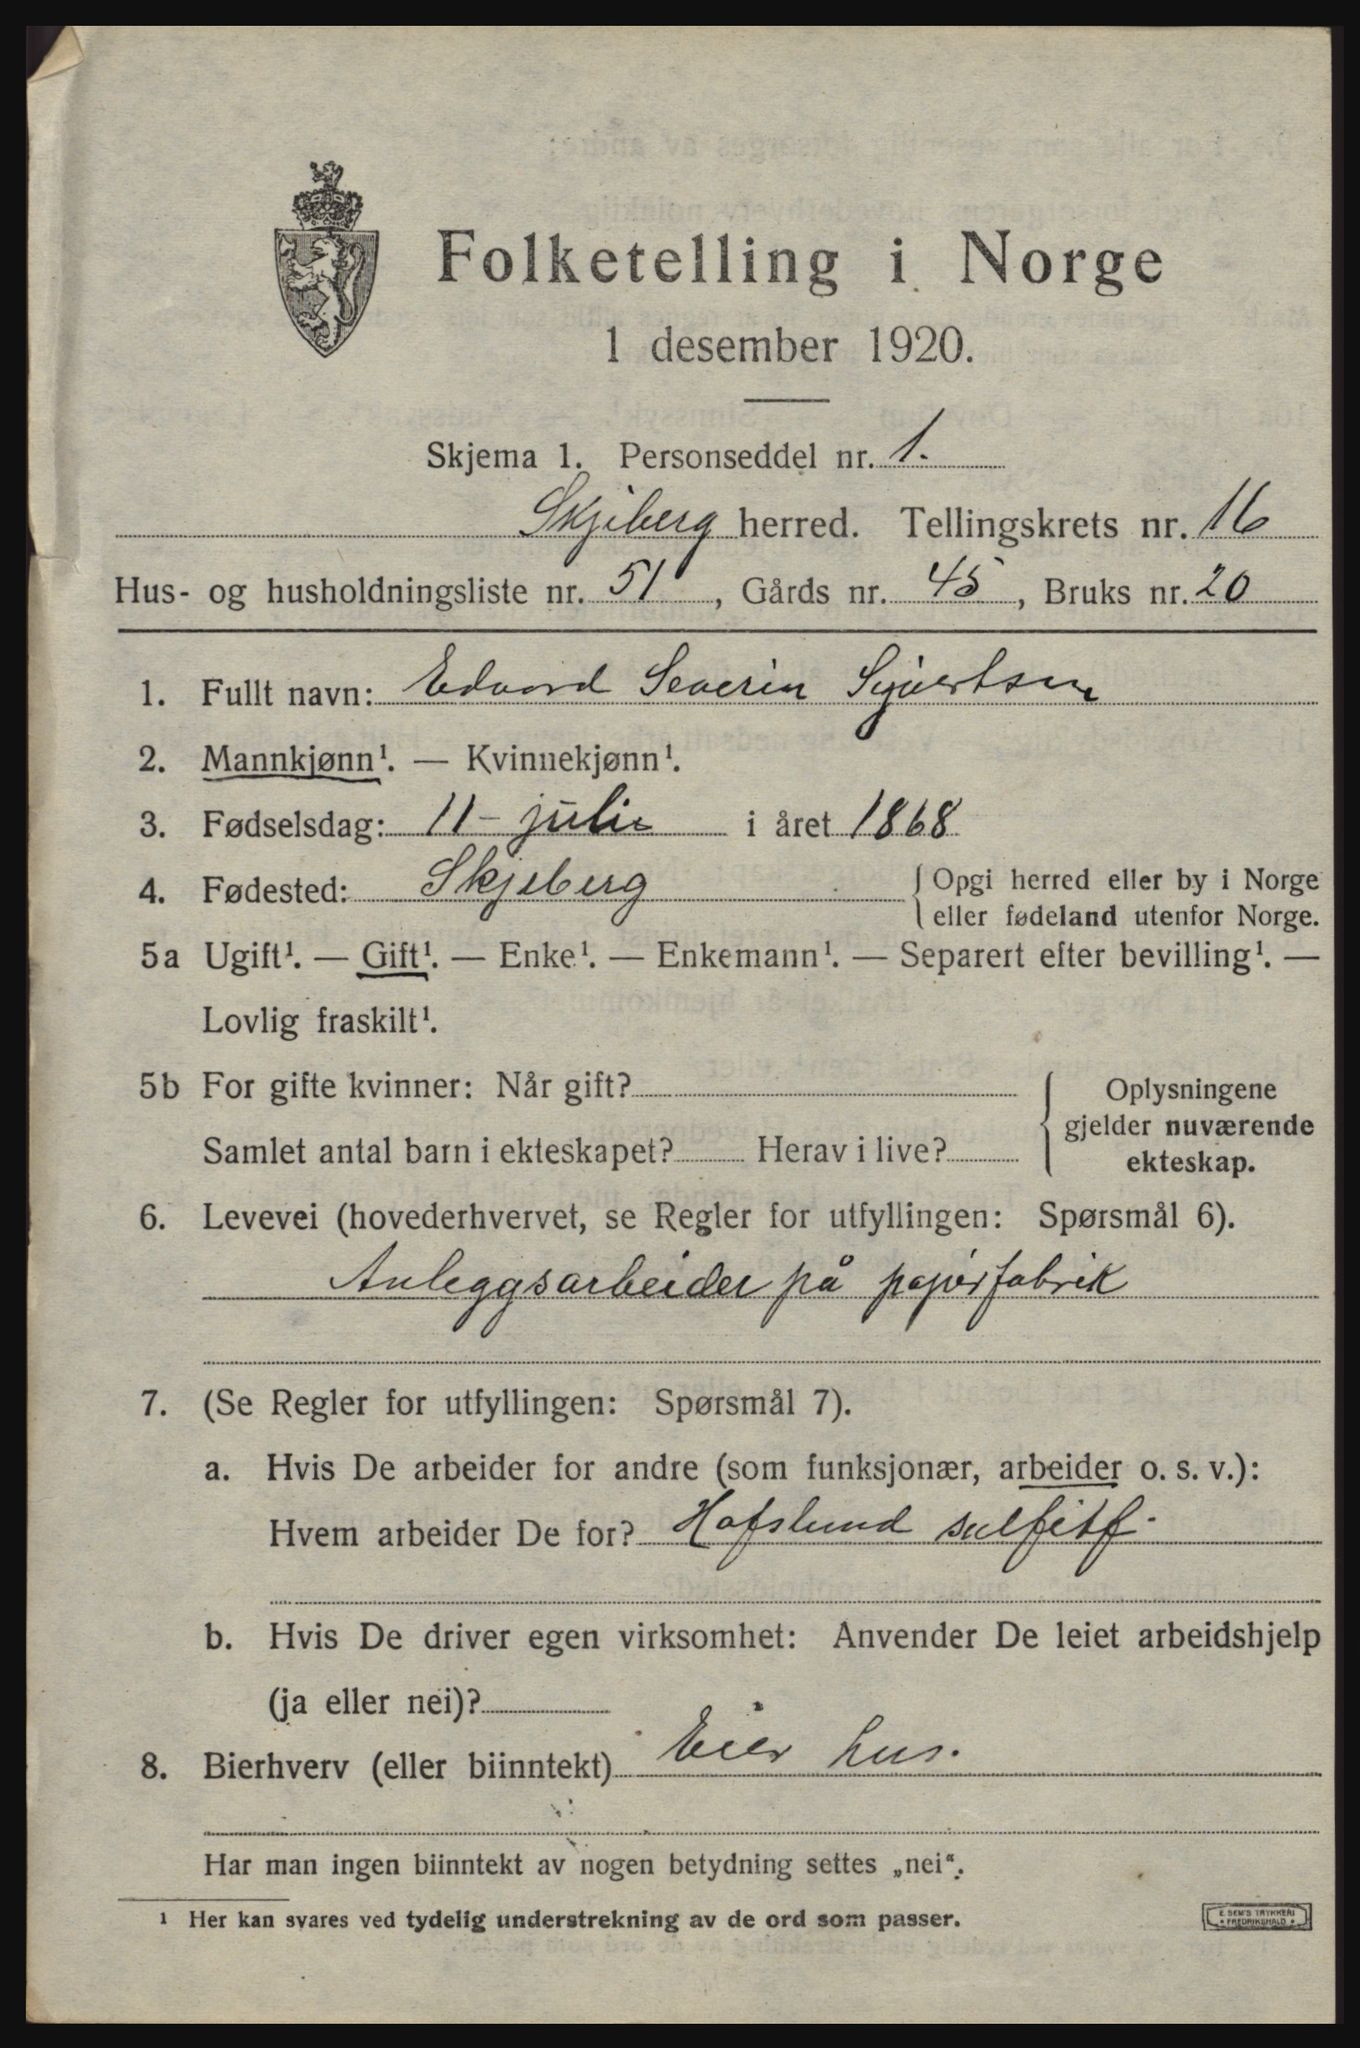 Folketelling i Norge
1 desember 1920.
Skjema 1. Personseddel nr. 1.
Skjeberg herred. Tellingskrets nr. 16
Hus- og husholdningsliste nr. 51, Gårds nr. 45, Bruks nr. 20
1. Fullt navn: Edvard Severin Syvertsen
2. Mannkjønn¹. — Kvinnekjønn¹.
3. Fødselsdag: 11 - juli i året 1868
4. Fødested: Skjeberg { Opgi herred eller by i Norge
eller fødeland utenfor Norge.
5a Ugift¹. — Gift¹. — Enke¹. — Enkemann¹. — Separert efter bevilling¹. —
Lovlig fraskilt¹.
5b For gifte kvinner: Når gift?
Samlet antal barn i ekteskapet? Herav i live?
{ Oplysningene
gjelder nuværende
ekteskap.
6. Levevei (hovederhvervet, se Regler for utfyllingen: Spørsmål 6).
Anleggsarbeider på papirfabrik
7. (Se Regler for utfyllingen: Spørsmål 7).
a. Hvis De arbeider for andre (som funksjonær, arbeider o. s. v.):
Hvem arbeider De for? Hafslund sulfitf.
b. Hvis De driver egen virksomhet: Anvender De leiet arbeidshjelp
(ja eller nei)?
8. Bierhverv (eller biinntekt) Eier hus.
Har man ingen biinntekt av nogen betydning settes „nei“.
¹ Her kan svares ved tydelig understrekning av de ord som passer.
E. SEM'S TRYKKERI
FREDRIKSHALD